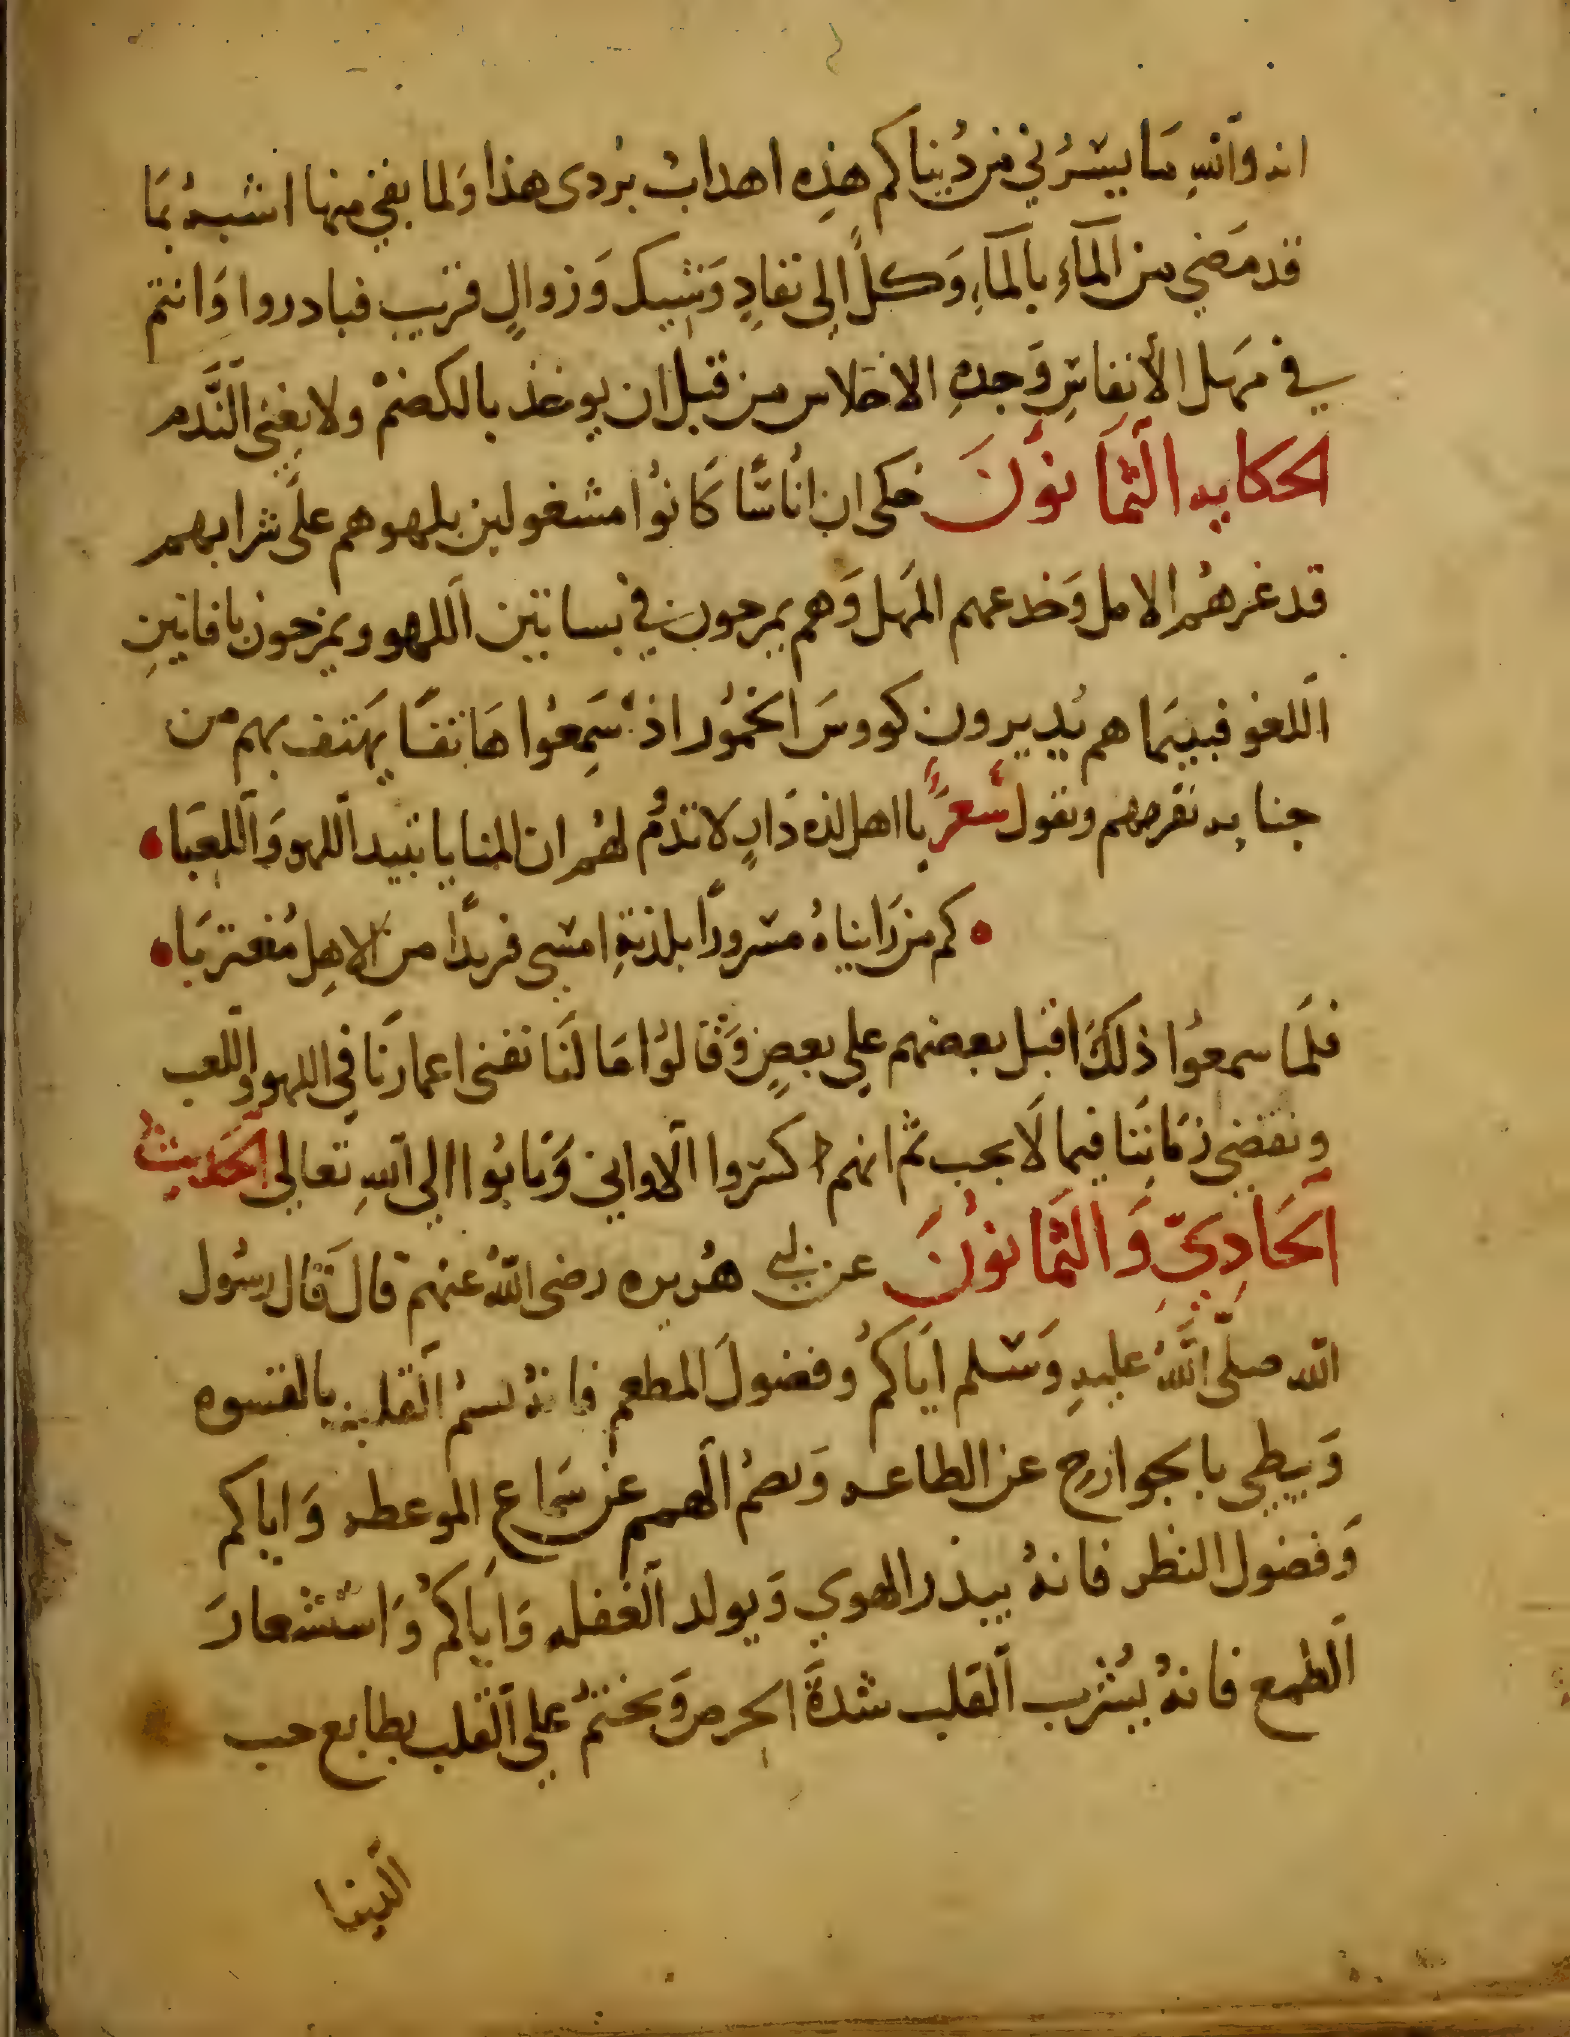 انه والله ما يسرني من دنياكم هذه اهداب بردى هذا ولما بقي منها اشبه بما
قد مضي من المآء بالمآء وكلٌ الي نفادٍ وشيك وزوالٍ قريب فبادروا وانتم
في مهل الأنفاس وجده الاخلاس من قبل ان يوخذ بالكضم ولا يغني الندم
الحكايه الثمانون حكى ان اناسًا كانوا مشغولين بلهوهم على شرابهم
قد غرهم الامل وخدعهم المهل وهم يمرحون في بساتين اللهو ويمزحون بافانين
اللغو فبينما هم يديرون كووس الخمور اذ سمعوا هاتفًا يهتف بهم من
جنابه نقرصهم ونقول شعرًا يا اهل لذه دارٍ لا تدُم لهم ان المنايا تبيد اللهو واللعبا
كم من راينا هُ مسرورًا بلذتهِ امسي فريدًا من الاهل مُغتربا
فلما سمعوا ذلك اقبل بعضهم علي بعضٍ وقالوا مالنا نفنى اعمارنا في اللهو واللعب
ونقضي زماننا فيما لا يجب ثم انهم اكسروا الاواني وتابوا الي الله تعالي الحديث
الحادي والثمانون عن ابي هريره رضى الله عنهم قال قال رسول
الله صلى الله عليه وسلم اياكم وفضول المطعم فانهُ يسم القلب بالقسوه
ويبطي بالجوارح عن الطاعه ويصم الهمم عن سماع الموعظه واياكم
وفضول النظر فانهُ يبذر الهوي ويولد الغفله واياكم واستشعار
الطمع فانهُ يُشرب القلب شدة الحرص ويختم علي القلب بطابع حب
الدنيا